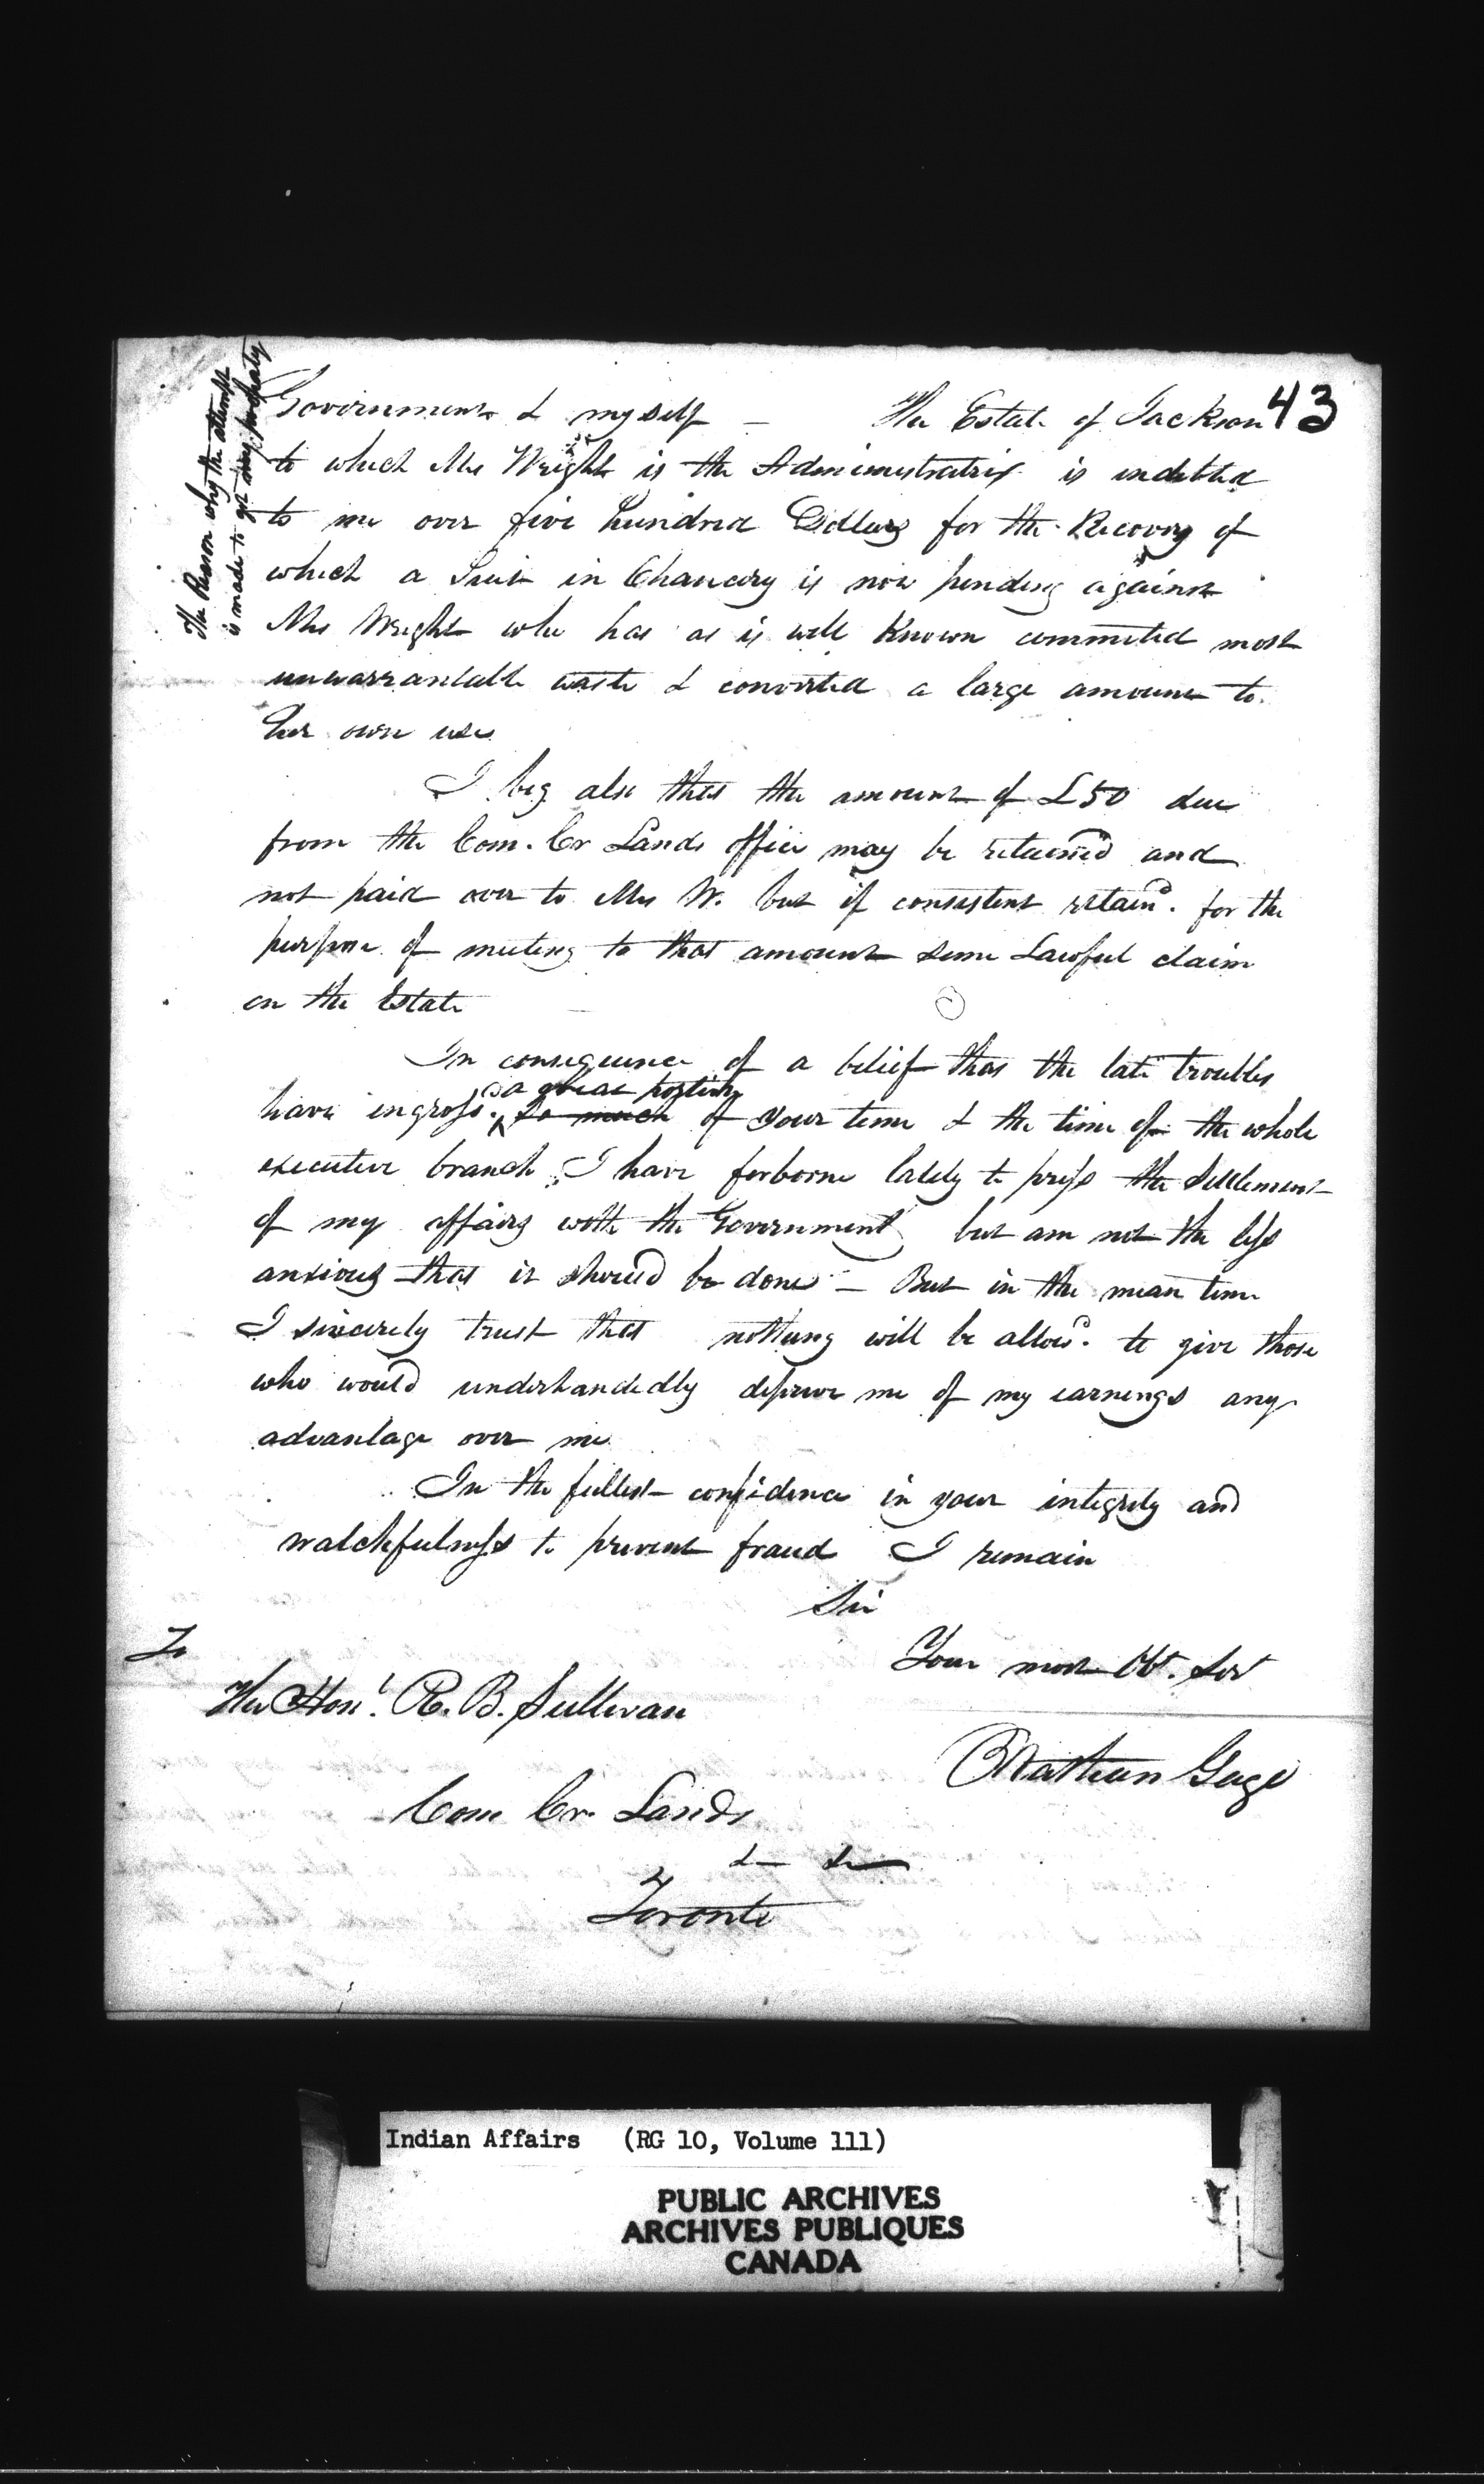 43
The Reason why the attempt
is made to get my property
Government & myself — The Estate of Jackson
to which Mrs Wright is the Administratrix is indebted
to me over five hundred Dollars for the Recovery of
which a Suit in Chancery is now pending against
Mrs Wright who has as is well Known commited most
unwarrantable waste & converted a large amount to
her own use
I beg also that the amount of £50 due
from the Com. Cr Lands office may be retained and
not paid over to Mrs W. but if consistent retaind. for the
purpose of meeting to that amount some Lawful claim
on the Estate
In consequence of a belief that the late troubles
a great portion
have ingrossd. so much of your time & the time of the whole
executive branch, I have forborne lately to press the Settlement
of my affairs with the Government but am not the less
anxious that it should be done — But in the mean time
I sincerely trust that nothing will be allowd. to give those
who would underhandedly deprive me of my earnings any
advantage over me
In the fullest confidence in your integrity and
watchfulness to prevent fraud I remain
Sir
Your most Obt. Sevt
To
The Honl. R. B. Sullivan
Nathan Gage
Com Cr. Lands
& &
Toronto
Indian Affairs (RG 10, Volume 111)
PUBLIC ARCHIVES
ARCHIVES PUBLIQUES
CANADA